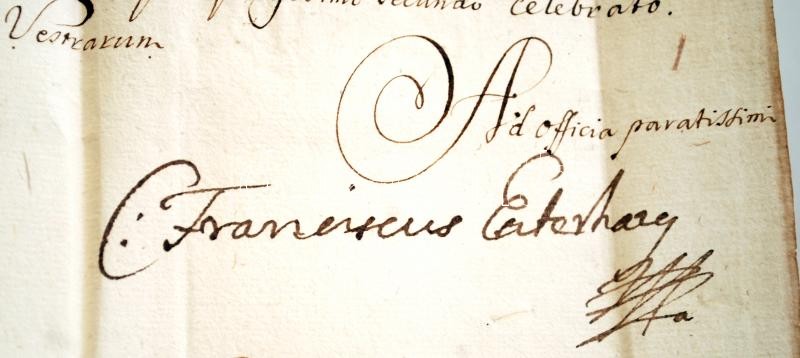 secundo celebrato.
Vestrarum
Ad officia paratissimi
Franciscus Eszterhazy